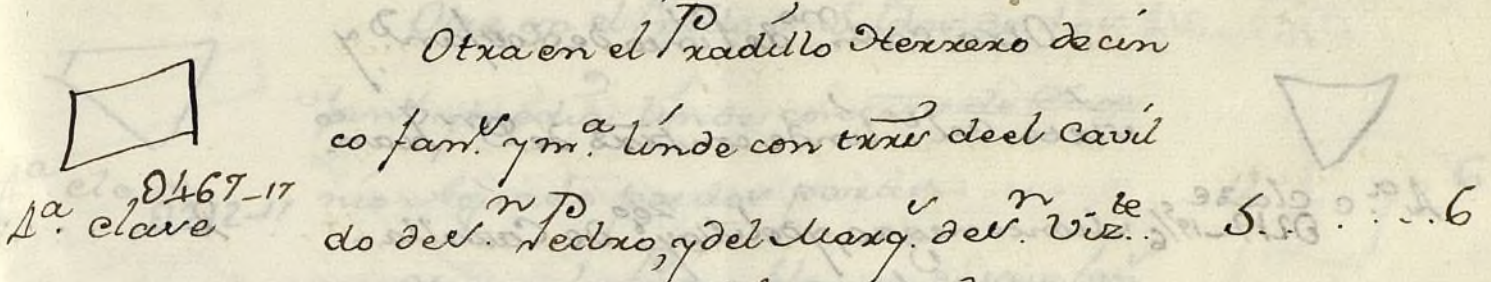 Otra en el Pradillo Herrero de cin
co fan.s y m.a linde con trrs de el Cavil
do de S.n Pedro, y del Marq.s de S.n Viz.te 5.....6
0467-17
1.a clase